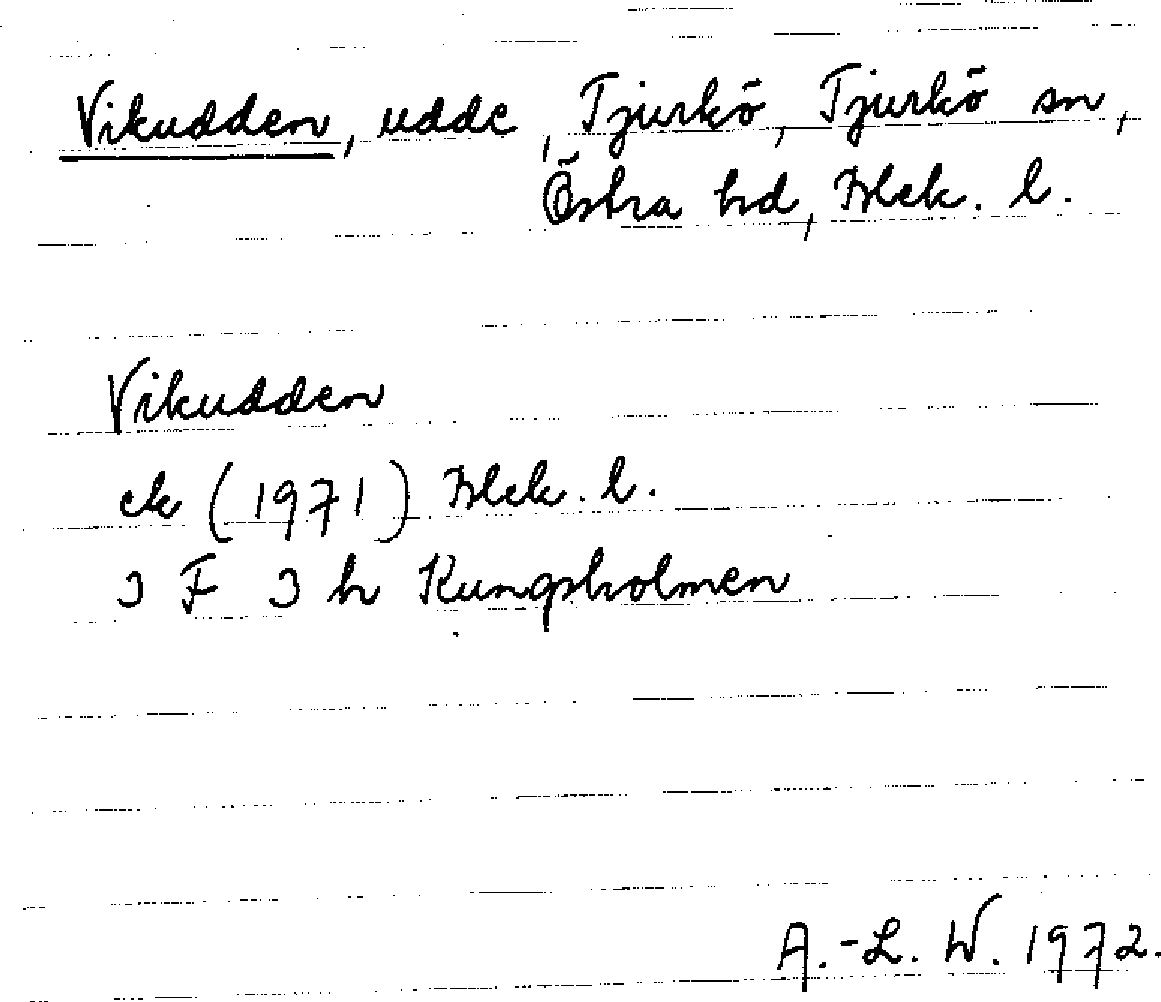 Vikudden, udde, Tjurkö, Tjurkö sn,
Östra hd, Blek. l.
Vikudden
ek (1971) Blek. l.
3 F 3 h Kungsholmen
A.-L. W. 1972.